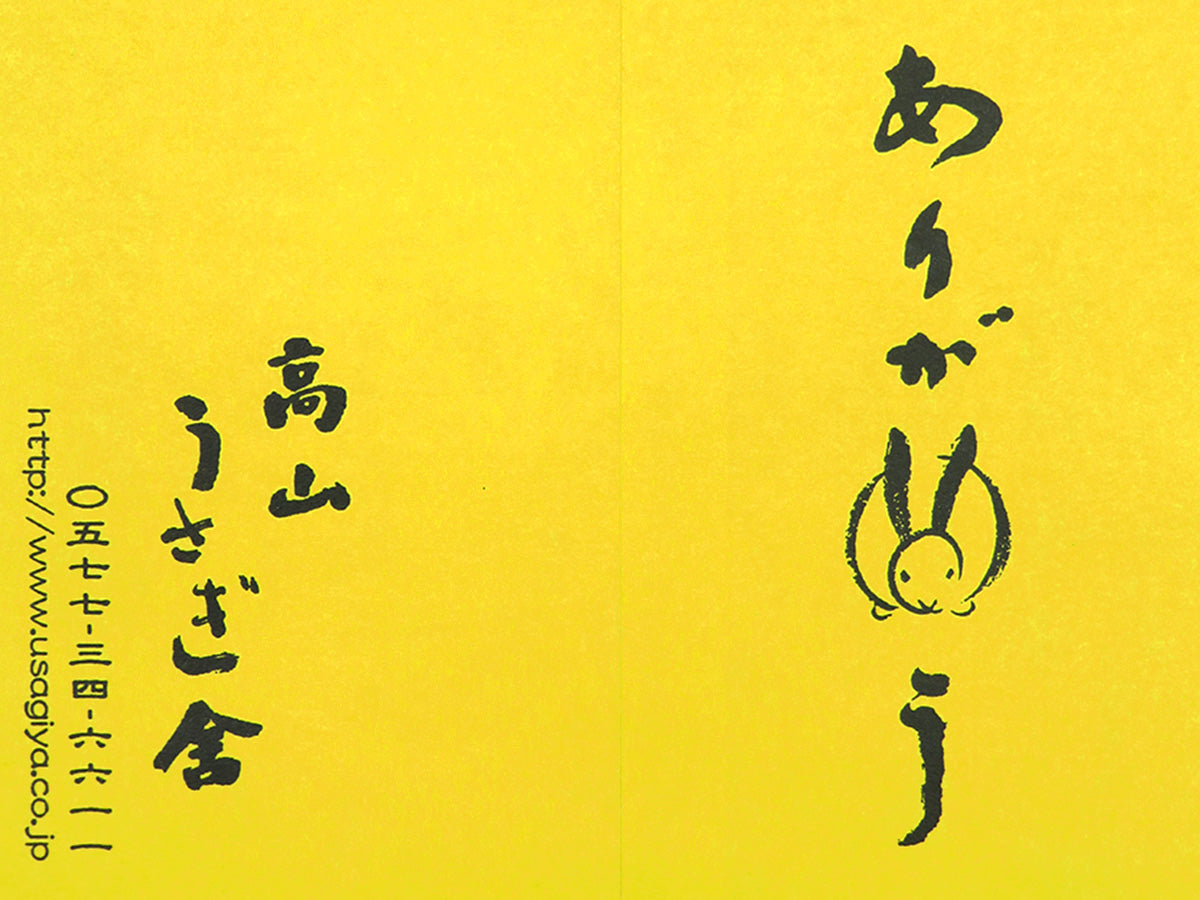 ありがう
高山
うさぎ舎
〇五七七-三四-六六一一
http://www.usagiya.co.jp